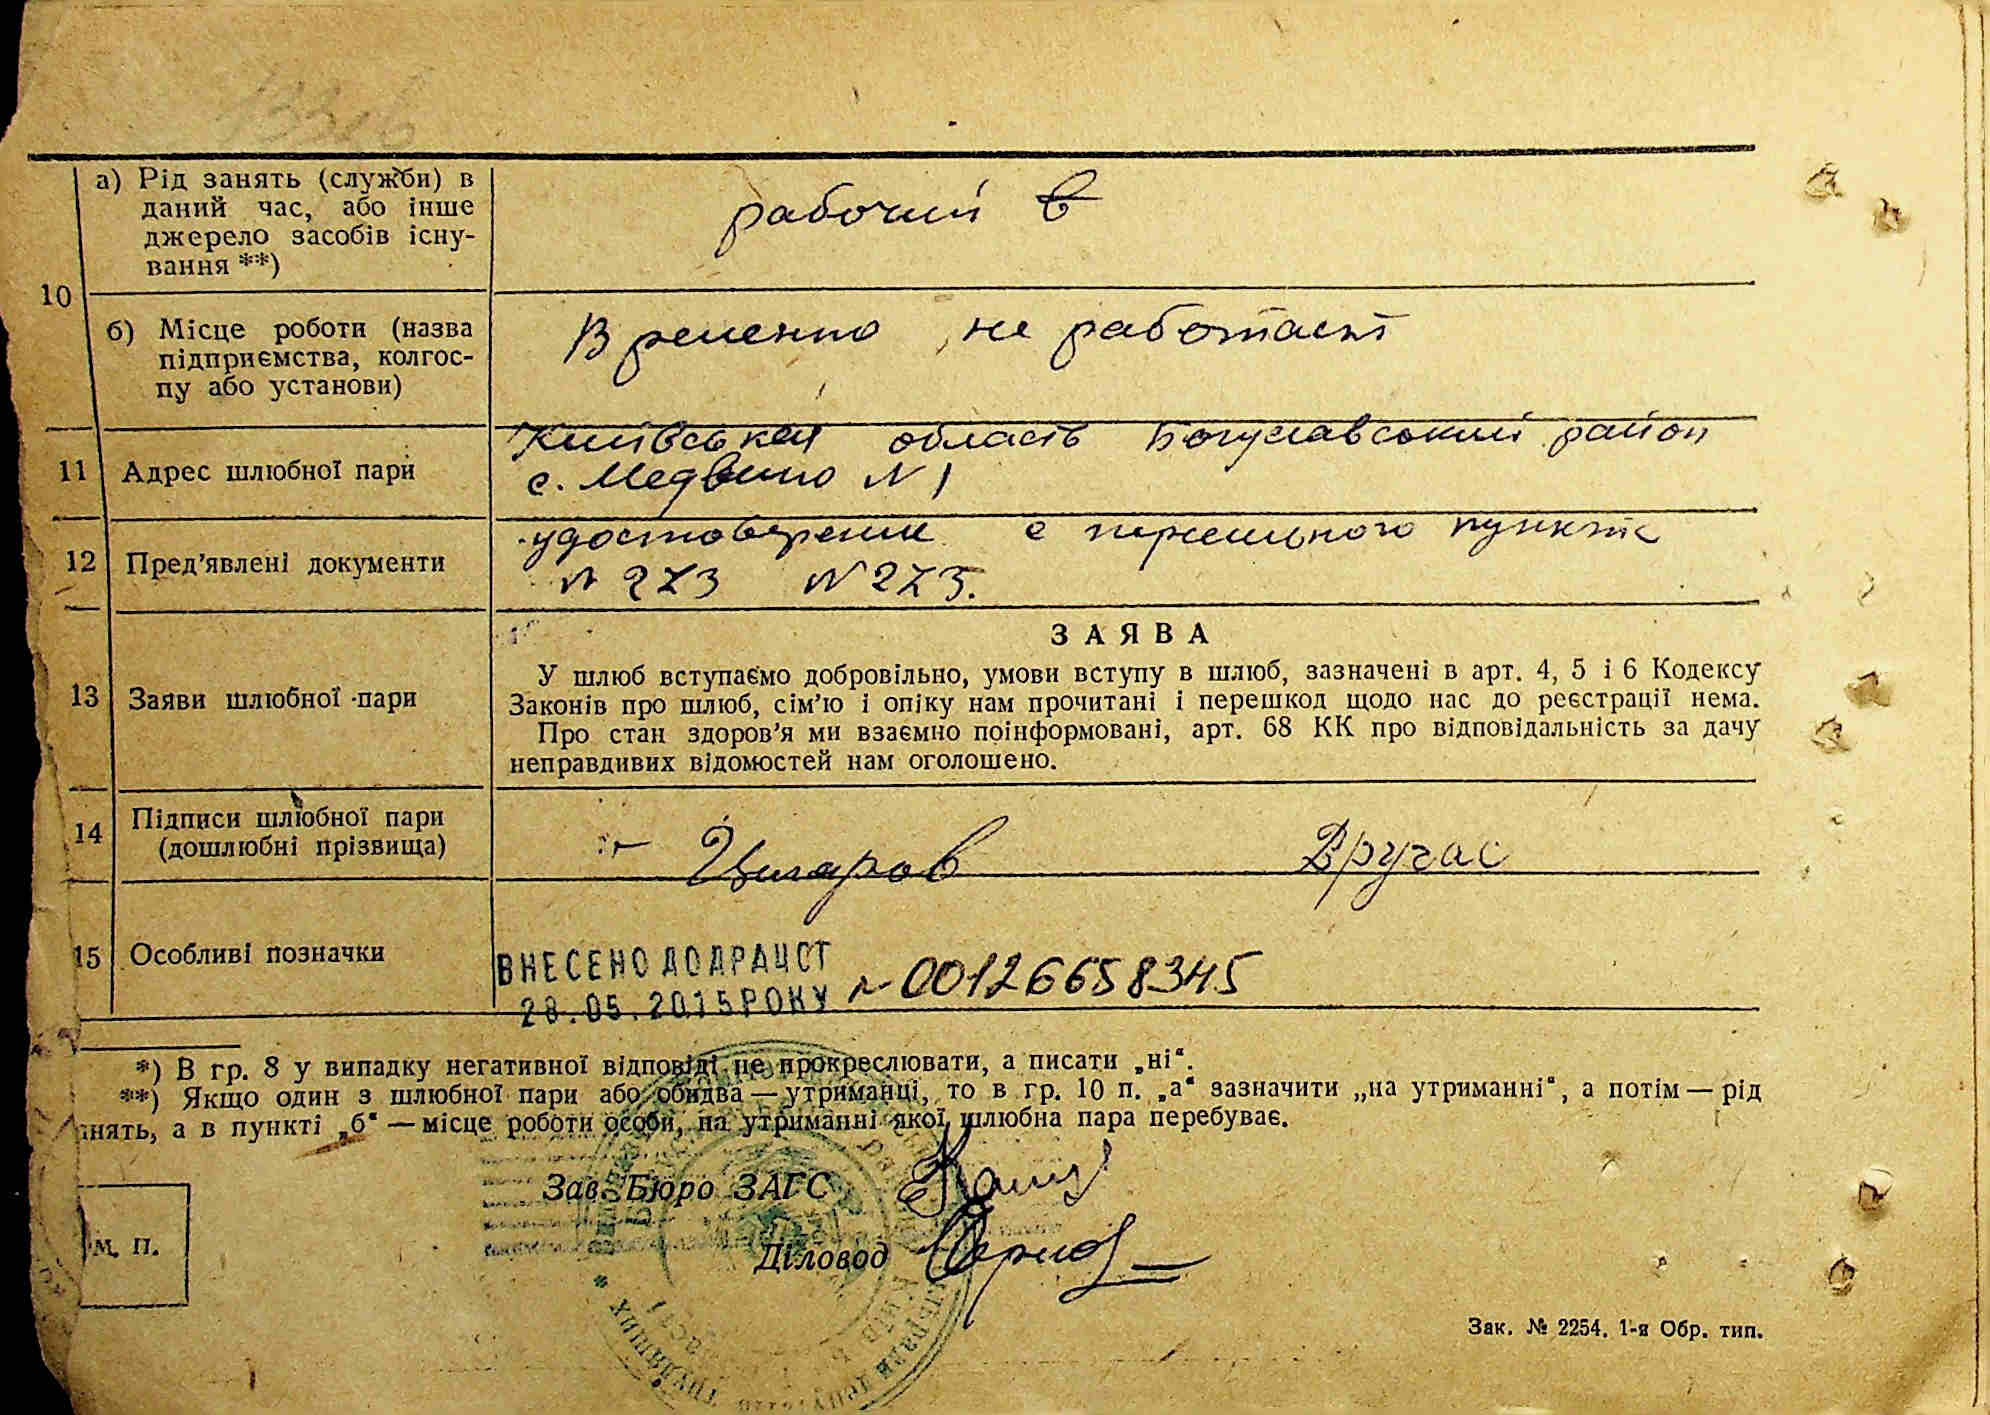 10
а) Рід занять (служби) в
даний час, або інше
джерело засобів існу-
вання **)
рабочий в
б) Місце роботи (назва
підприємства, колгос-
пу або установи)
Временно не работает
11 Адрес шлюбної пари
Київська область Богуславський район
с. Медвино N 1
12 Пред'явлені документи
удостоверение с пункта
N 273 N 273.
13 Заяви шлюбної пари
ЗАЯВА
У шлюб вступаємо добровільно, умови вступу в шлюб, зазначені в арт. 4, 5 і 6 Кодексу
Законів про шлюб, сім'ю і опіку нам прочитані і перешкод щодо нас до реєстрації нема.
Про стан здоров'я ми взаємно поінформовані, арт. 68 КК про відповідальність за дачу
неправдивих відомостей нам оголошено.
14 Підписи шлюбної пари
(дошлюбні прізвища)
15 Особливі позначки
ВНЕСЕНО ДО ДРАЦСТ
28.05.2015 РОКУ
N 00126658345
*) В гр. 8 у випадку негативної відповіді не прокреслювати, а писати „ні“.
**) Якщо один з шлюбної пари або обидва — утриманці, то в гр. 10 п. „а“ зазначити „на утриманні“, а потім — рід
нять, а в пункті „б“ — місце роботи особи, на утриманні якої шлюбна пара перебуває.
Зав. Бюро ЗАГС
Діловод
М. П.
Зак. № 2254. 1-я Обр. тип.